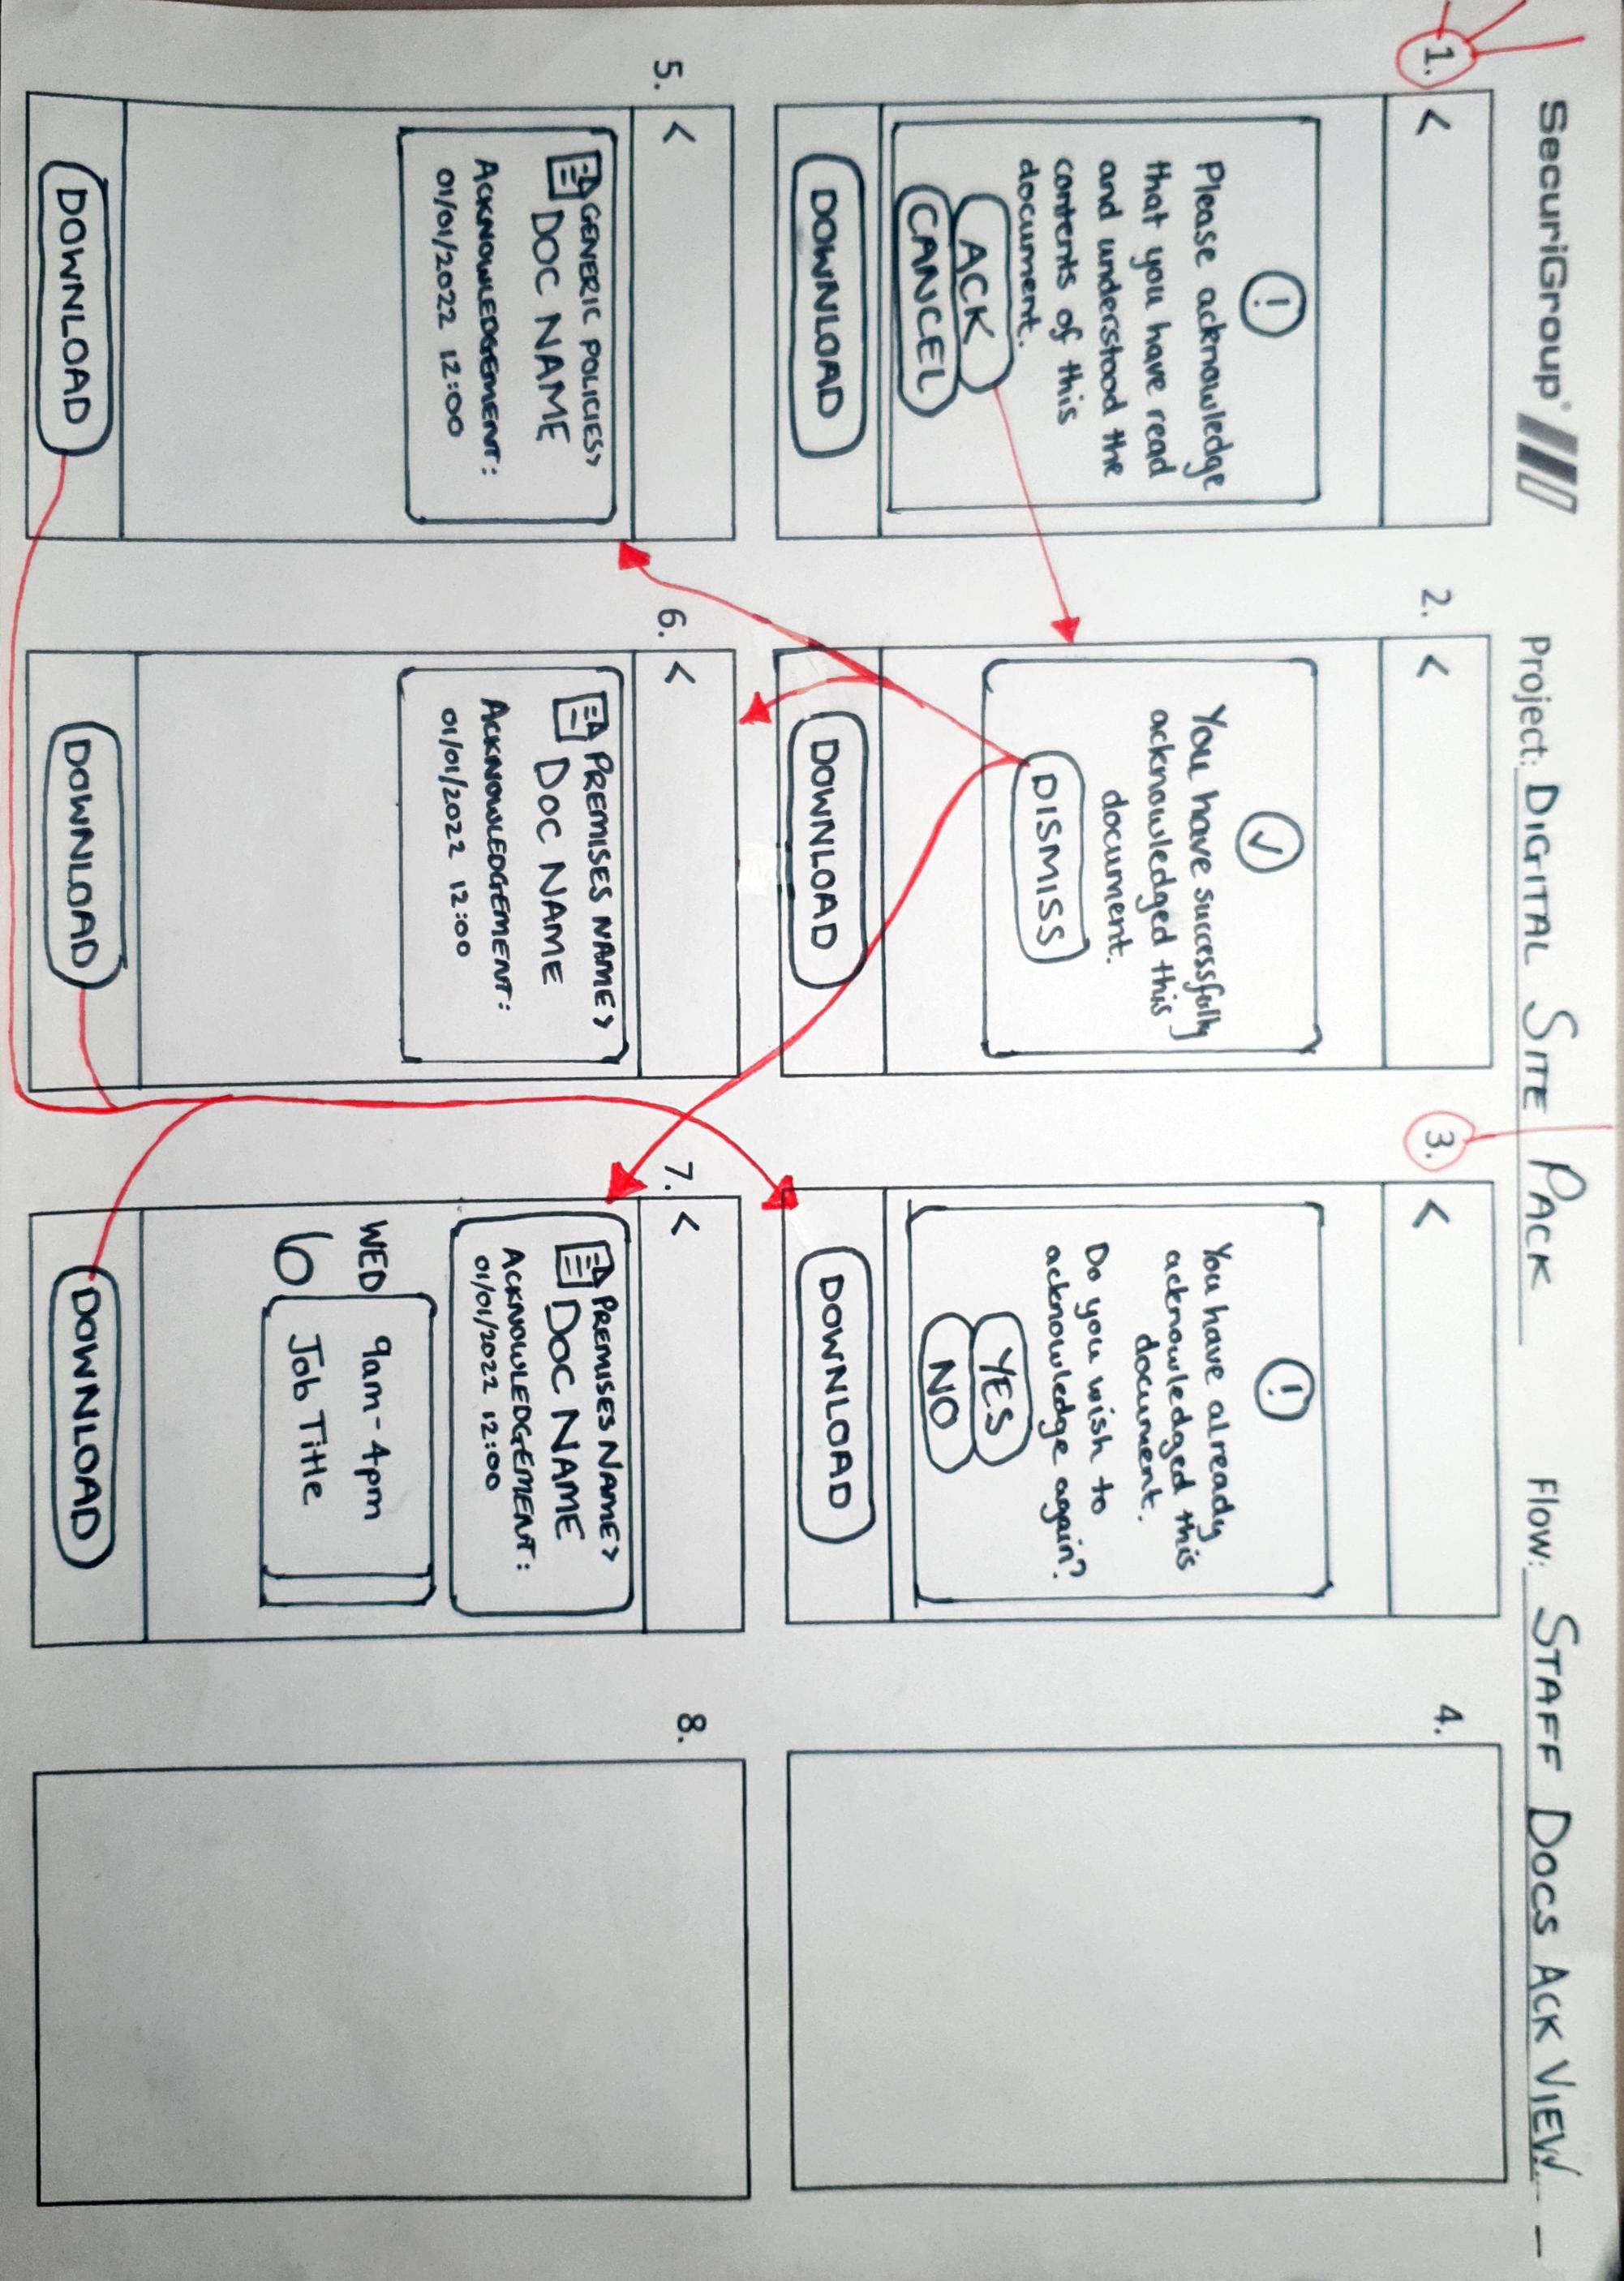 SecuriGroup®
Project: DIGITAL SITE PACK
Flow: STAFF DOCS ACK VIEW
1.
<
!
Please acknowledge
that you have read
and understood the
contents of this
document.
ACK
CANCEL
DOWNLOAD
2.
<
You have successfully
acknowledged this
document.
DISMISS
DOWNLOAD
3.
<
!
You have already
acknowledged this
document.
Do you wish to
acknowledge again?
YES
NO
DOWNLOAD
4.
5.
<
GENERIC POLICIES>
DOC NAME
ACKNOWLEDGEMENT:
01/01/2022 12:00
DOWNLOAD
6.
<
PREMISES NAME>
DOC NAME
ACKNOWLEDGEMENT:
01/01/2022 12:00
DOWNLOAD
7.
<
PREMISES NAME>
DOC NAME
ACKNOWLEDGEMENT:
01/01/2022 12:00
WED 9am-4pm
6 Job Title
DOWNLOAD
8.